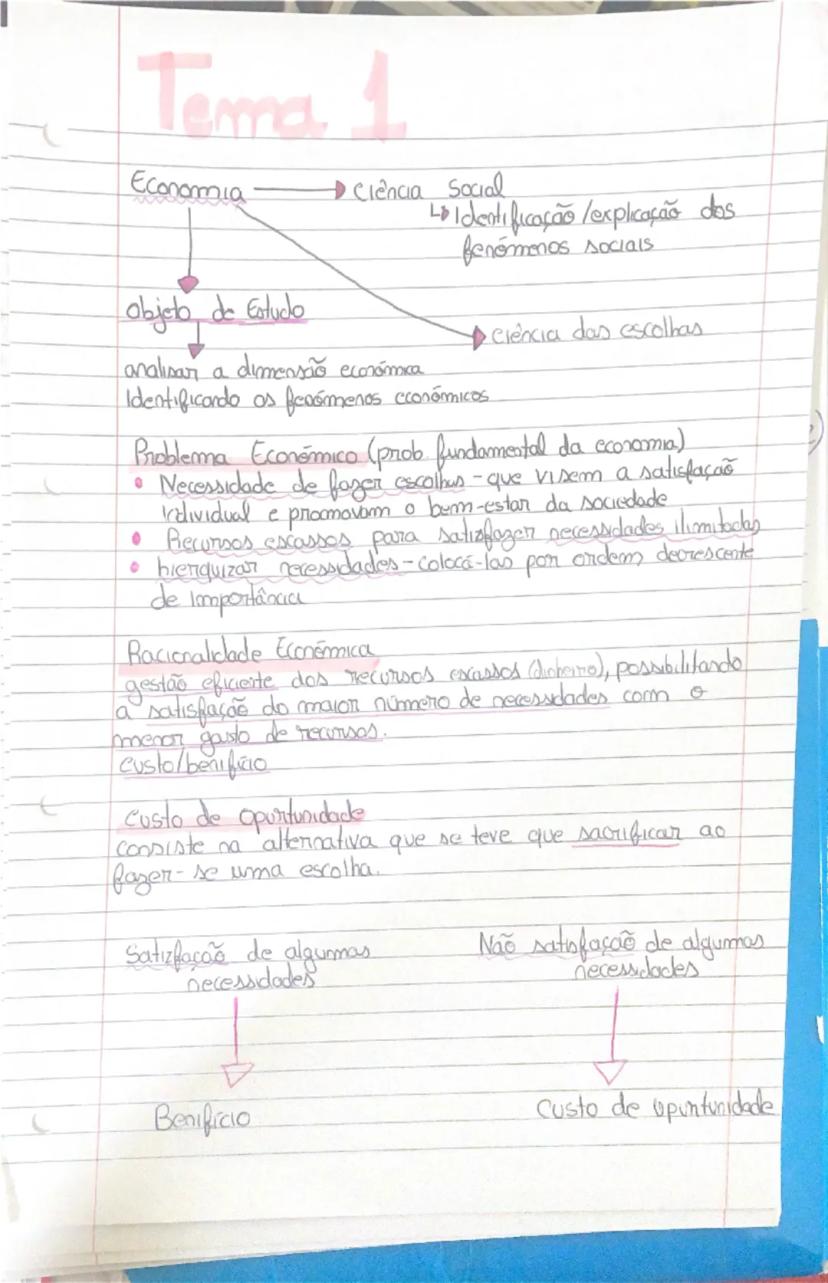 Tema 1
Economia → Ciência Social
↳ Identificação/explicação dos
fenómenos sociais
Objeto de Estudo
Ciência das escolhas
analisar a dimensão económica
Identificando os fenómenos económicos
Problema Económico (prob. fundamental da economia)
• Necessidade de fazer escolhas - que visem a satisfação
individual e promovam o bem-estar da sociedade
• Recursos escassos para satizfazer necessidades ilimitadas
• hierquizar necessidades - colocá-las por ordem decrescente
de importância
Racionalidade Económica
gestão eficiente dos recursos escassos (dinheiro), possibilitando
a satisfação do maior número de necessidades com o
menor gasto de recursos.
Custo/benifício
Custo de oportunidade
consiste na alternativa que se teve que sacrificar ao
fazer-se uma escolha.
Satizfação de algumas
necessidades
Não satisfação de algumas
necessidades
Benifício
Custo de oportunidade